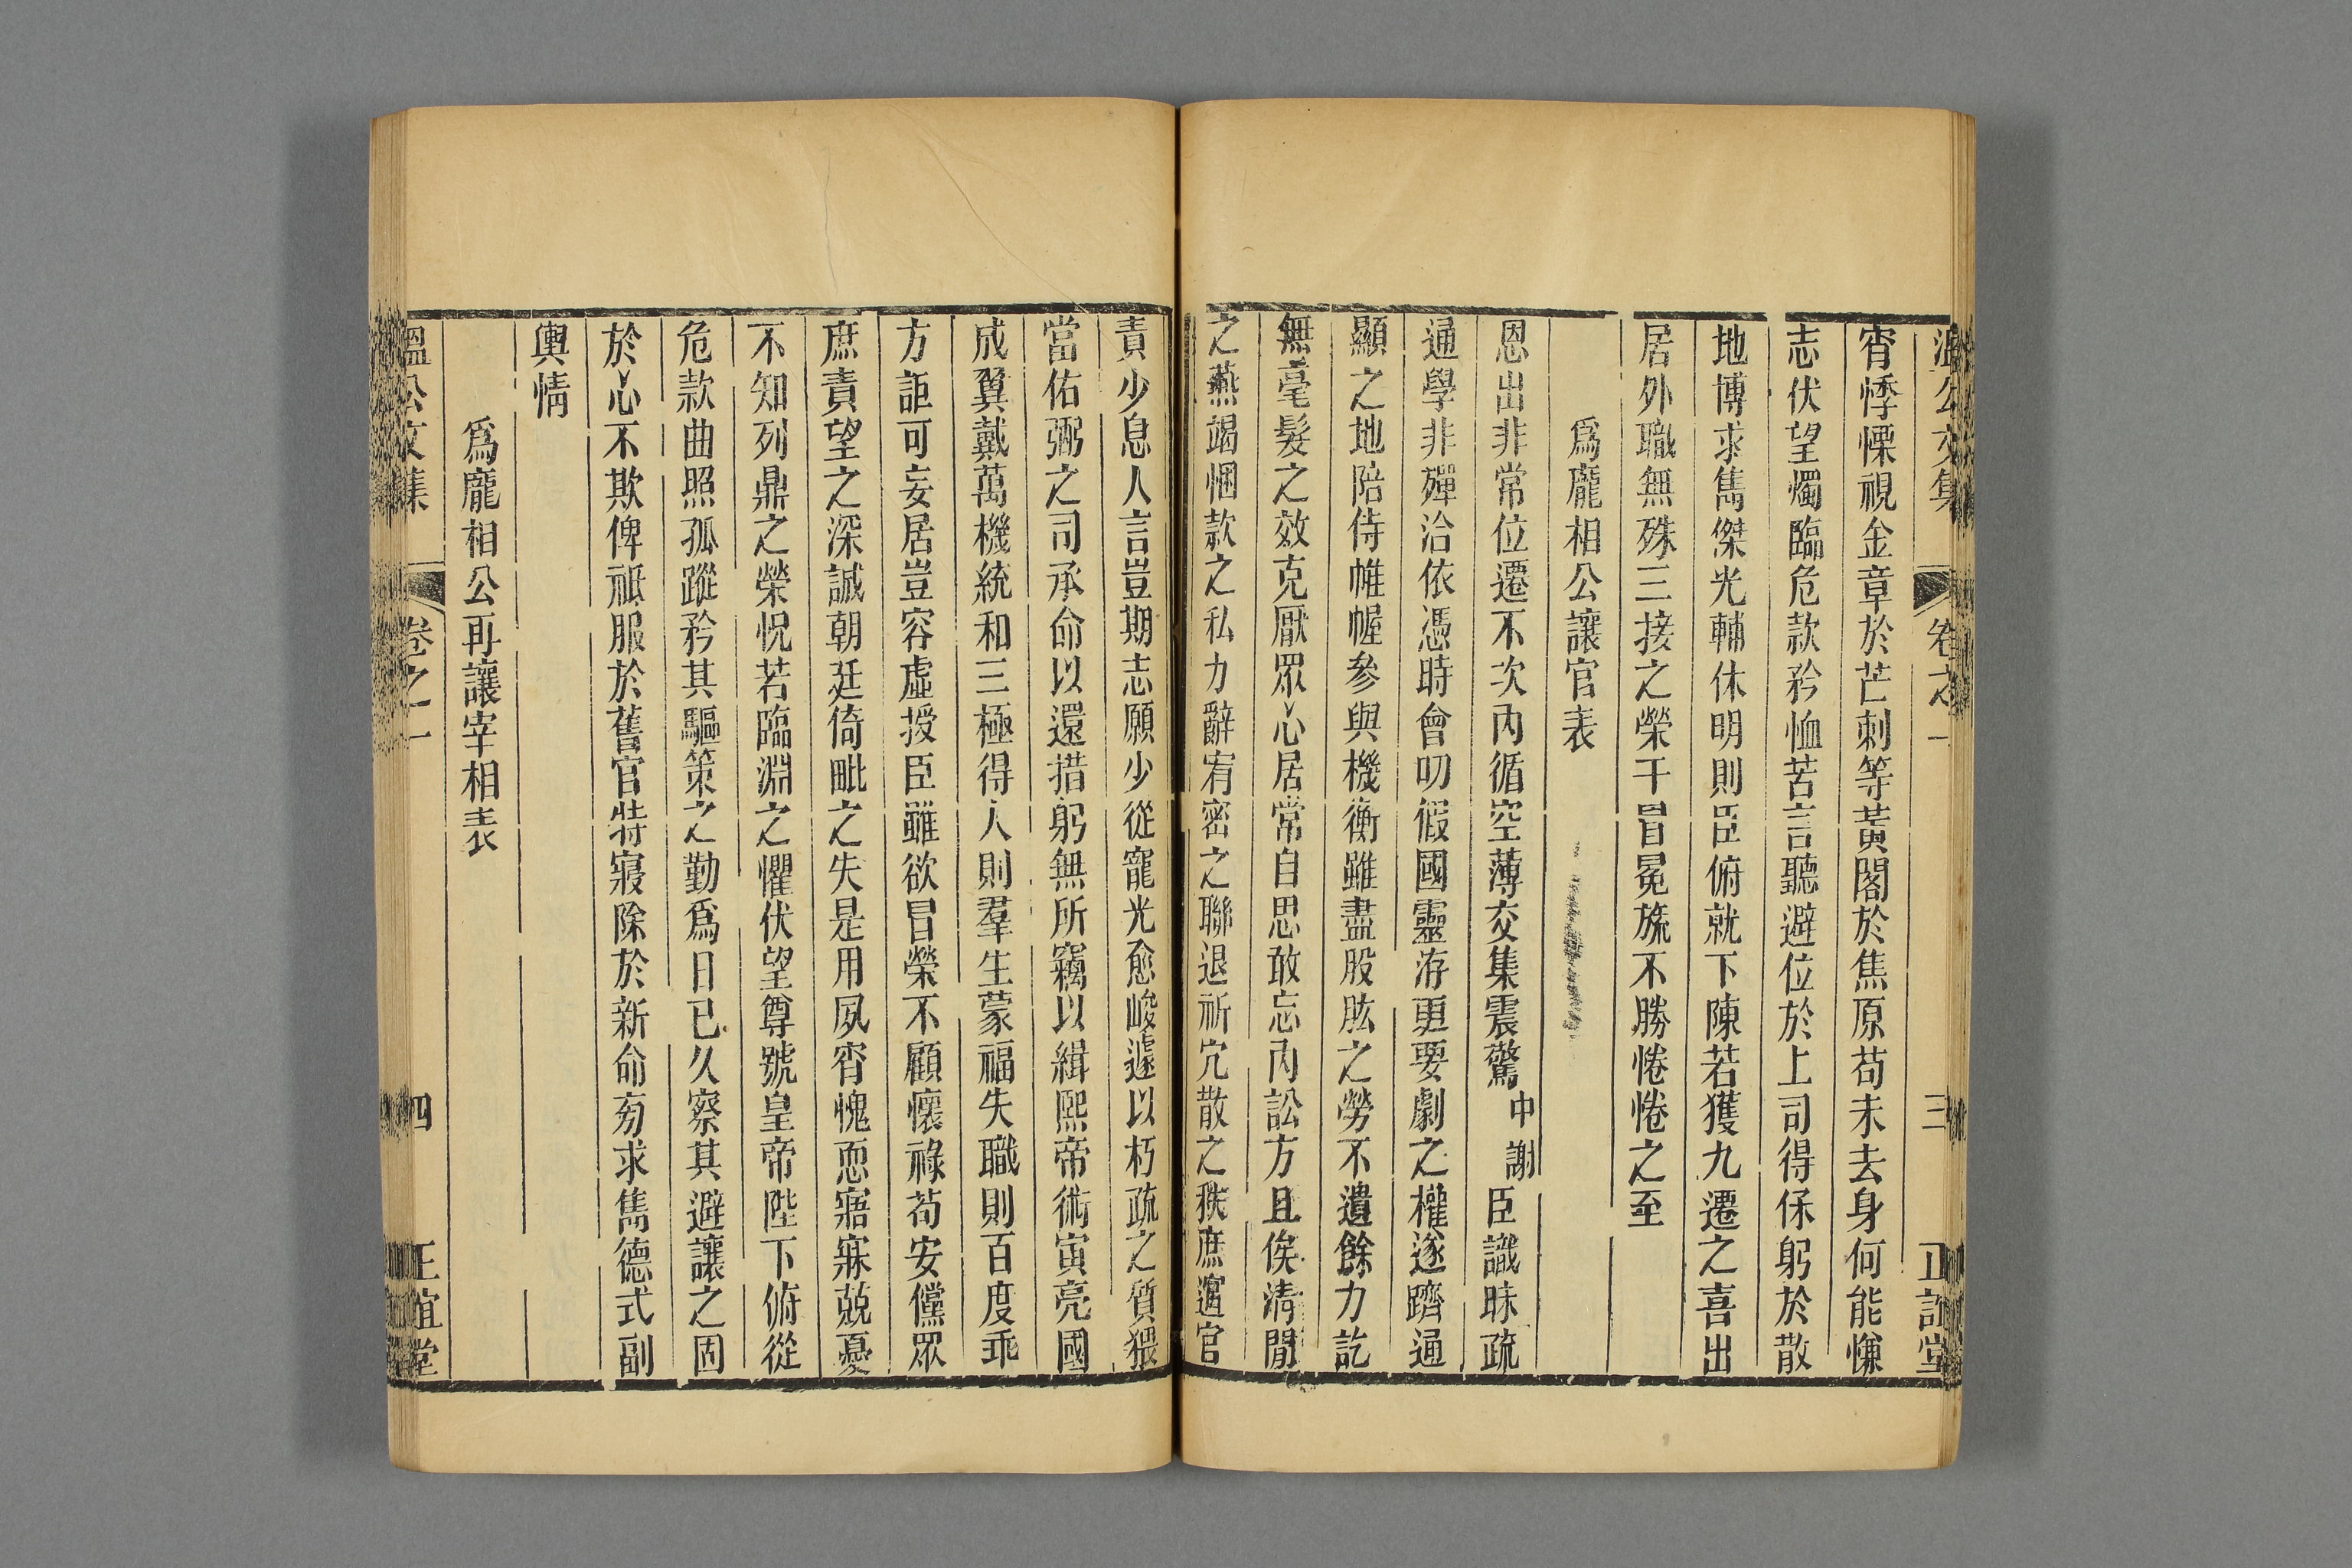 溫公文集 卷之一 三 正誼堂
宵悸慄視金章於芒刺等黃閣於焦原苟未去身何能慊
志伏望燭臨危款矜恤苦言聽避位於上司得保躬於散
地博求雋傑光輔休明則臣俯就下陳若獲九遷之喜出
居外職無殊三接之榮干冒冕旒不勝惓惓之至
爲龐相公讓官表
恩出非常位遷不次內循空薄交集震驚中謝臣識昧疏
通學非殫洽依憑時會叨假國靈洊更要劇之權遂躋通
顯之地陪侍帷幄參與機衡雖盡股肱之勞不遺餘力訖
無毫髮之效克厭眾心居常自思敢忘內訟方且俟清閒
之燕竭悃款之私力辭宥密之聯退祈宂散之秩庶逭官
責少息人言豈期志願少從寵光愈峻遽以朽疏之質猥
當佑弼之司承命以還措躬無所竊以緝熙帝術寅亮國
成翼戴萬機統和三極得人則羣生蒙福失職則百度乖
方詎可妄居豈容虛授臣雖欲冒榮不顧懷祿苟安儻眾
庶責望之深誠朝廷倚毗之失是用夙宵愧恧寤寐兢憂
不知列鼎之榮怳若臨淵之懼伏望尊號皇帝陛下俯從
危款曲照孤蹤矜其驅策之勤爲日已久察其避讓之固
於心不欺俾祗服於舊官特寢除於新命旁求雋德式副
輿情
爲龐相公再讓宰相表
溫公文集 卷之一 四 正誼堂